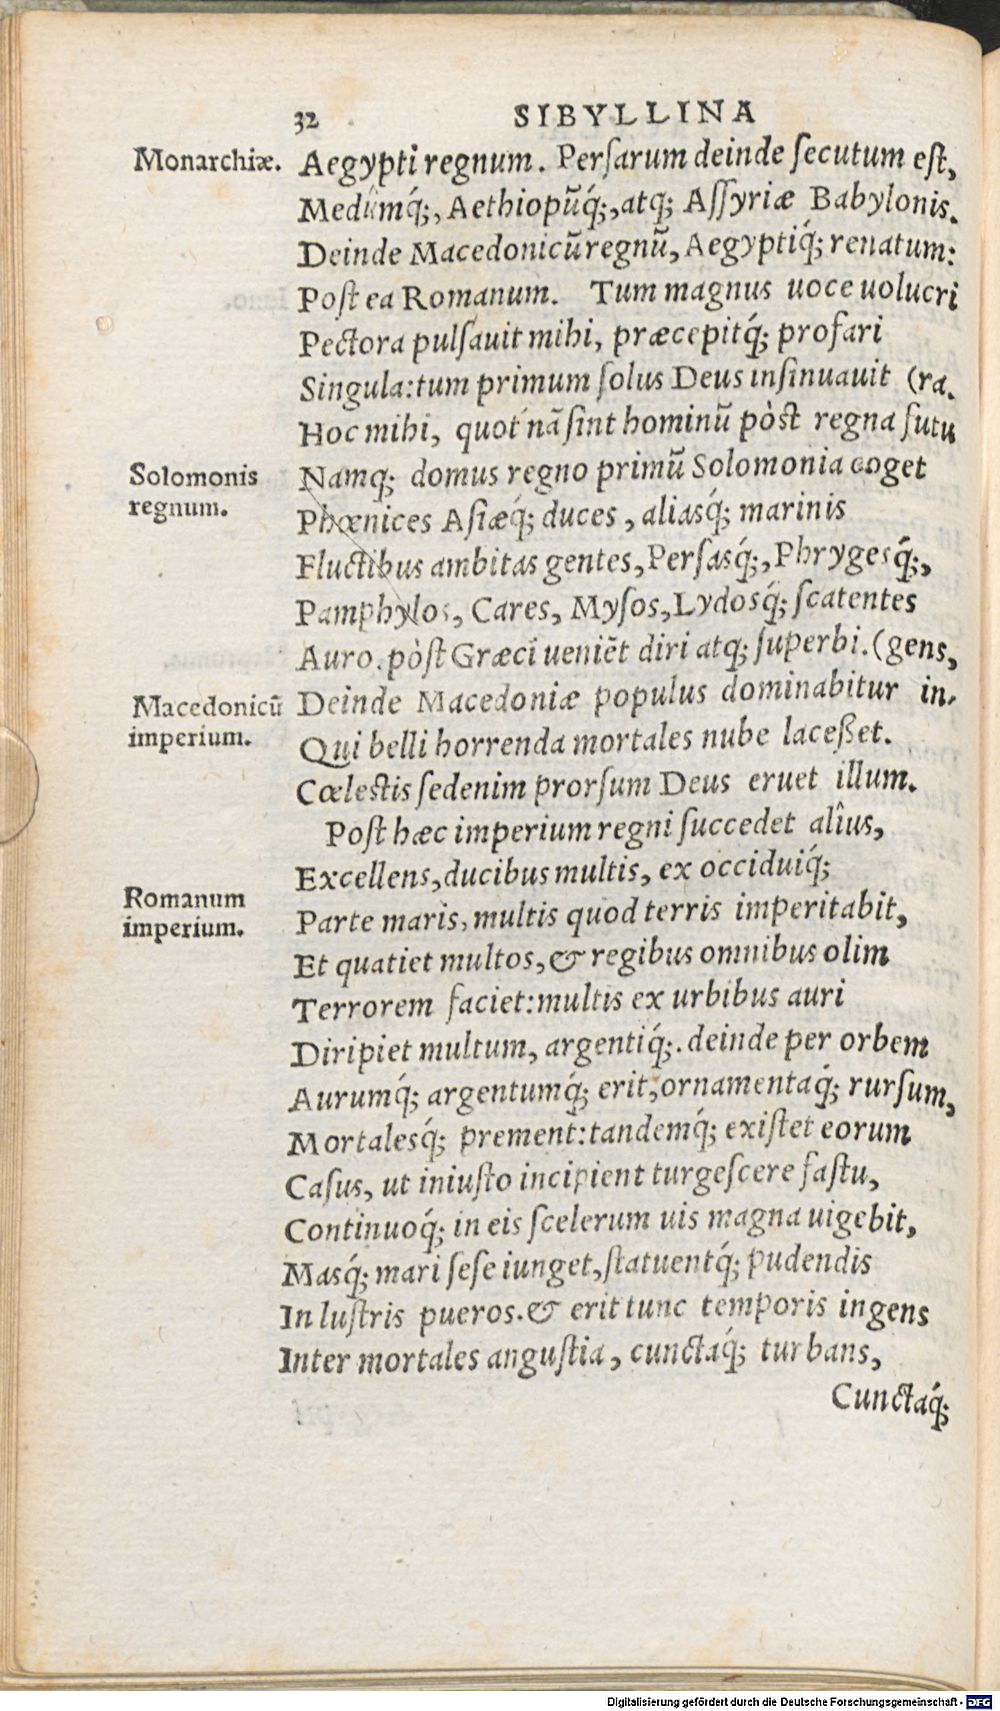 32 SIBYLLINA
Monarchiæ. Aegypti regnum. Perſarum deinde ſecutum eſt,
Medũmq́;, Aethiopũq́;, atq; Aſſyriæ Babylonis.
Deinde Macedonicũ regnũ, Aegyptiq́; renatum:
Poſt ea Romanum. Tum magnus uoce uolucri
Pectora pulſauit mihi, præcepitq́; profari
Singula: tum primum ſolus Deus inſinuauit (ra.
Hoc mihi, quot nã ſint hominũ pòſt regna futu
Solomonis Namq; domus regno primũ Solomonia coget
regnum. Phœnices Aſiæq́; duces, aliasq́; marinis
Fluctibus ambitas gentes, Perſasq́;, Phrygesq́;,
Pamphylos, Cares, Myſos, Lydosq́; ſcatentes
Auro. pòſt Græci ueniẽt diri atq; ſuperbi. (gens,
Macedonicũ Deinde Macedoniæ populus dominabitur in-
imperium. Qui belli horrenda mortales nube laceßet.
Cœleſtis ſed enim prorſum Deus eruet illum.
Poſt hæc imperium regni ſuccedet alîus,
Excellens, ducibus multis, ex occiduiq́;
Romanum Parte maris, multis quod terris imperitabit,
imperium. Et quatiet multos, & regibus omnibus olim
Terrorem faciet: multis ex urbibus auri
Diripiet multum, argentiq́;. deinde per orbem
Aurumq́; argentumq́; erit, ornamentaq́; rurſum,
Mortalesq́; prement: tandemq́; exiſtet eorum
Caſus, ut iniuſto incipient turgeſcere faſtu,
Continuoq́; in eis ſcelerum uis magna uigebit,
Masq́; mari ſeſe iunget, ſtatuentq́; pudendis
In luſtris pueros. & erit tunc temporis ingens
Inter mortales anguſtia, cunctaq́; turbans,
Cunctaq́;
Digitalisierung gefördert durch die Deutsche Forschungsgemeinschaft - DFG